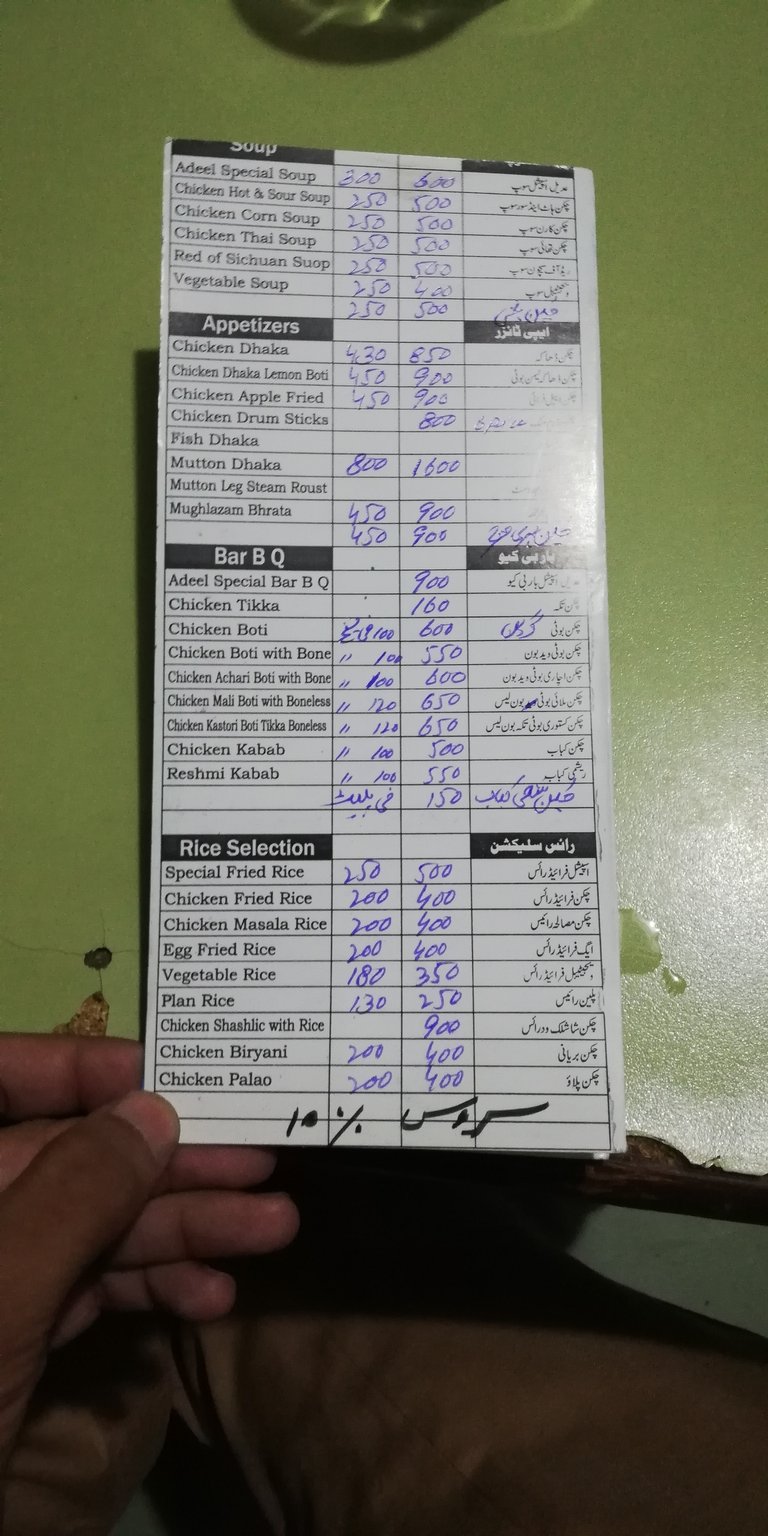 Soup
Adeel Special Soup 300 600 عدیل اسپیشل سوپ
Chicken Hot & Sour Soup 250 500 چکن ہاٹ اینڈ سور سوپ
Chicken Corn Soup 250 500 چکن کارن سوپ
Chicken Thai Soup 250 500 چکن تھائی سوپ
Red of Sichuan Suop 250 500 ریڈ آف سیچون سوپ
Vegetable Soup 250 400 ویجیٹیبل سوپ
250 500
Appetizers ایپی ٹائزر
Chicken Dhaka 430 850 چکن ڈھاکہ
Chicken Dhaka Lemon Boti 450 900 چکن ڈھاکہ لیمن بوٹی
Chicken Apple Fried 450 900
Chicken Drum Sticks 800
Fish Dhaka
Mutton Dhaka 800 1600
Mutton Leg Steam Roust
Mughlazam Bhrata 450 900
450 900
Bar B Q بار بی کیو
Adeel Special Bar B Q 900 عدیل اسپیشل بار بی کیو
Chicken Tikka 160 چکن تکہ
Chicken Boti 100 600 چکن بوٹی
Chicken Boti with Bone 〃 100 550 چکن بوٹی وید بون
Chicken Achari Boti with Bone 〃 100 600 چکن اچاری بوٹی وید بون
Chicken Mali Boti with Boneless 〃 120 650 چکن ملائی بوٹی بون لیس
Chicken Kastori Boti Tikka Boneless 〃 120 650 چکن کستوری بوٹی تکہ بون لیس
Chicken Kabab 〃 100 500 چکن کباب
Reshmi Kabab 〃 100 550 ریشمی کباب
فی پلیٹ 150 کباب
Rice Selection رائس سلیکشن
Special Fried Rice 250 500 اسپیشل فرائیڈ رائس
Chicken Fried Rice 200 400 چکن فرائیڈ رائس
Chicken Masala Rice 200 400 چکن مصالحہ رائیس
Egg Fried Rice 200 400 ایگ فرائیڈ رائس
Vegetable Rice 180 350 ویجیٹیبل فرائیڈ رائس
Plan Rice 130 250 پلین رائیس
Chicken Shashlic with Rice 900 چکن شاشلک ود رائس
Chicken Biryani 200 400 چکن بریانی
Chicken Palao 200 400 چکن پلاؤ
10 % سروس